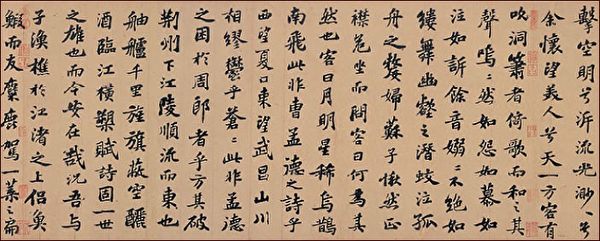 擊空明兮泝流光渺渺兮
余懷望美人兮天一方客有
吹洞簫者倚歌而和之其
聲嗚嗚然如怨如慕如
泣如訴餘音嫋嫋不絕如
縷舞幽壑之潛蛟泣孤
舟之嫠婦蘇子愀然正
襟危坐而問客曰何為其
然也客曰月明星稀烏鵲
南飛此非曹孟德之詩乎
西望夏口東望武昌山川
相繆鬱乎蒼蒼此非孟德
之困於周郎者乎方其破
荊州下江陵順流而東也
舳艫千里旌旗蔽空釃
酒臨江橫槊賦詩固一世
之雄也而今安在哉況吾與
子漁樵於江渚之上侶魚
蝦而友麋鹿駕一葉之扁